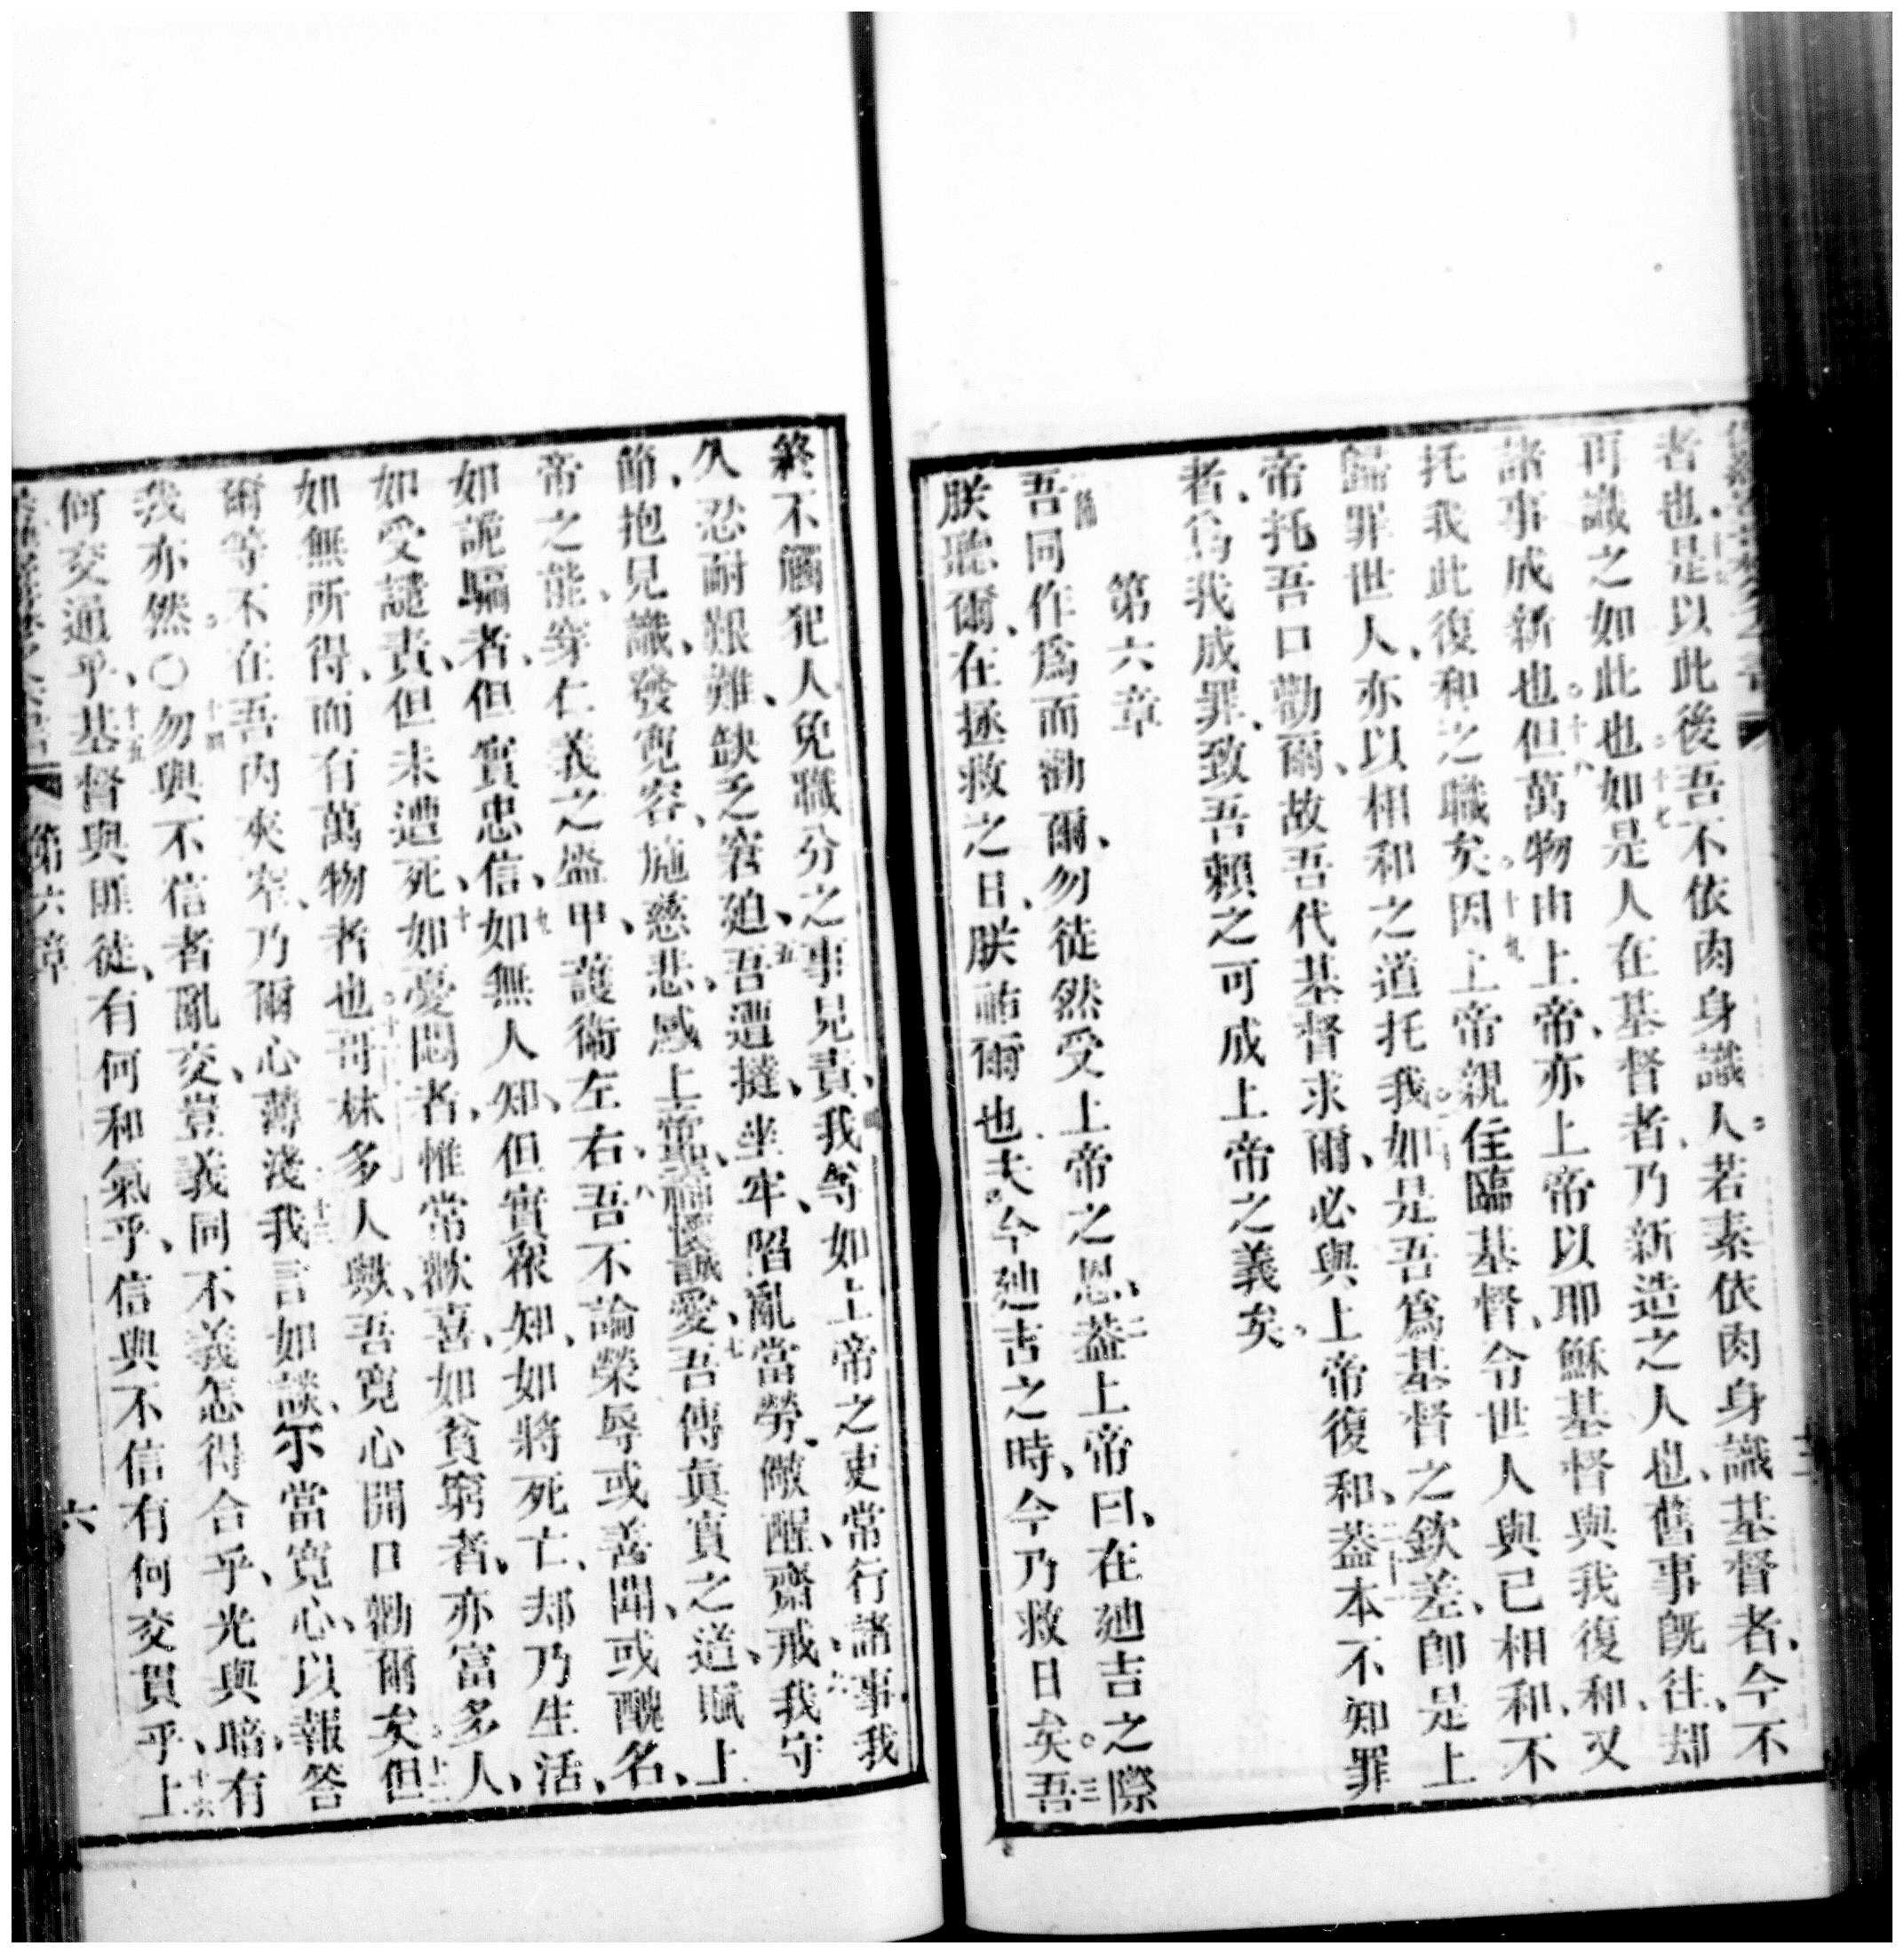 者也是以此後吾不依肉身識人若素依肉身識基督者、今不
十七
可識之如此也如是人在基督者、乃新造之人也、舊事旣往、却
十八
諸事成新也但萬物由上帝、亦上帝以耶穌基督與我復和、又
十九
托我此復和之職矣因上帝親住臨基督、令世人與已相和、不
二十
歸罪世人、亦以相和之道托我如是吾爲基督之欽差、卽是上
二十一
帝托吾口勸爾、故吾代基督求爾、必與上帝復和、葢本不知罪
者、爲我成罪、致吾賴之可成上帝之義矣
第六章
二
吾同作爲而勸爾、勿徒然受上帝之恩、葢上帝曰、在廸吉之際
三
朕聽爾、在拯救之日、朕祐爾也夫今廸吉之時、今乃救日矣吾
終不觸犯人免職分之事見責、我等如上帝之吏常行諸事我
四
久忍耐艱難、缺乏窘廹、吾遭撻、坐牢、陷亂當勞、儆醒、齋戒、我守
五 六
節、抱見識、發寬容、施慈悲、感上帝神懷誠愛、吾傳眞實之道、賦上
七
帝之能、穿仁義之盔甲、護衛左右、吾不論榮辱或善聞、或醜名、
八
如詭騙者、但實忠信、如無人知、但實衆知、如將死亡、却乃生活、
九
如受譴責、但未遭死、如憂悶者、惟常歡喜、如貧窮者、亦富多人、
十
如無所得、而有萬物者也哥林多人歟、吾寬心開口勸爾矣但
十一 十二
爾等不在吾內夾窄、乃爾心薄淺我言如談、爾當寬心、以報答
十三
我亦然〇勿與不信者亂交、豈義同不義怎得合乎、光與暗、有
十四
何交通乎、基督與匪徒、有何和氣乎、信與不信有何交貫乎、上
十五 十六
第六章
六